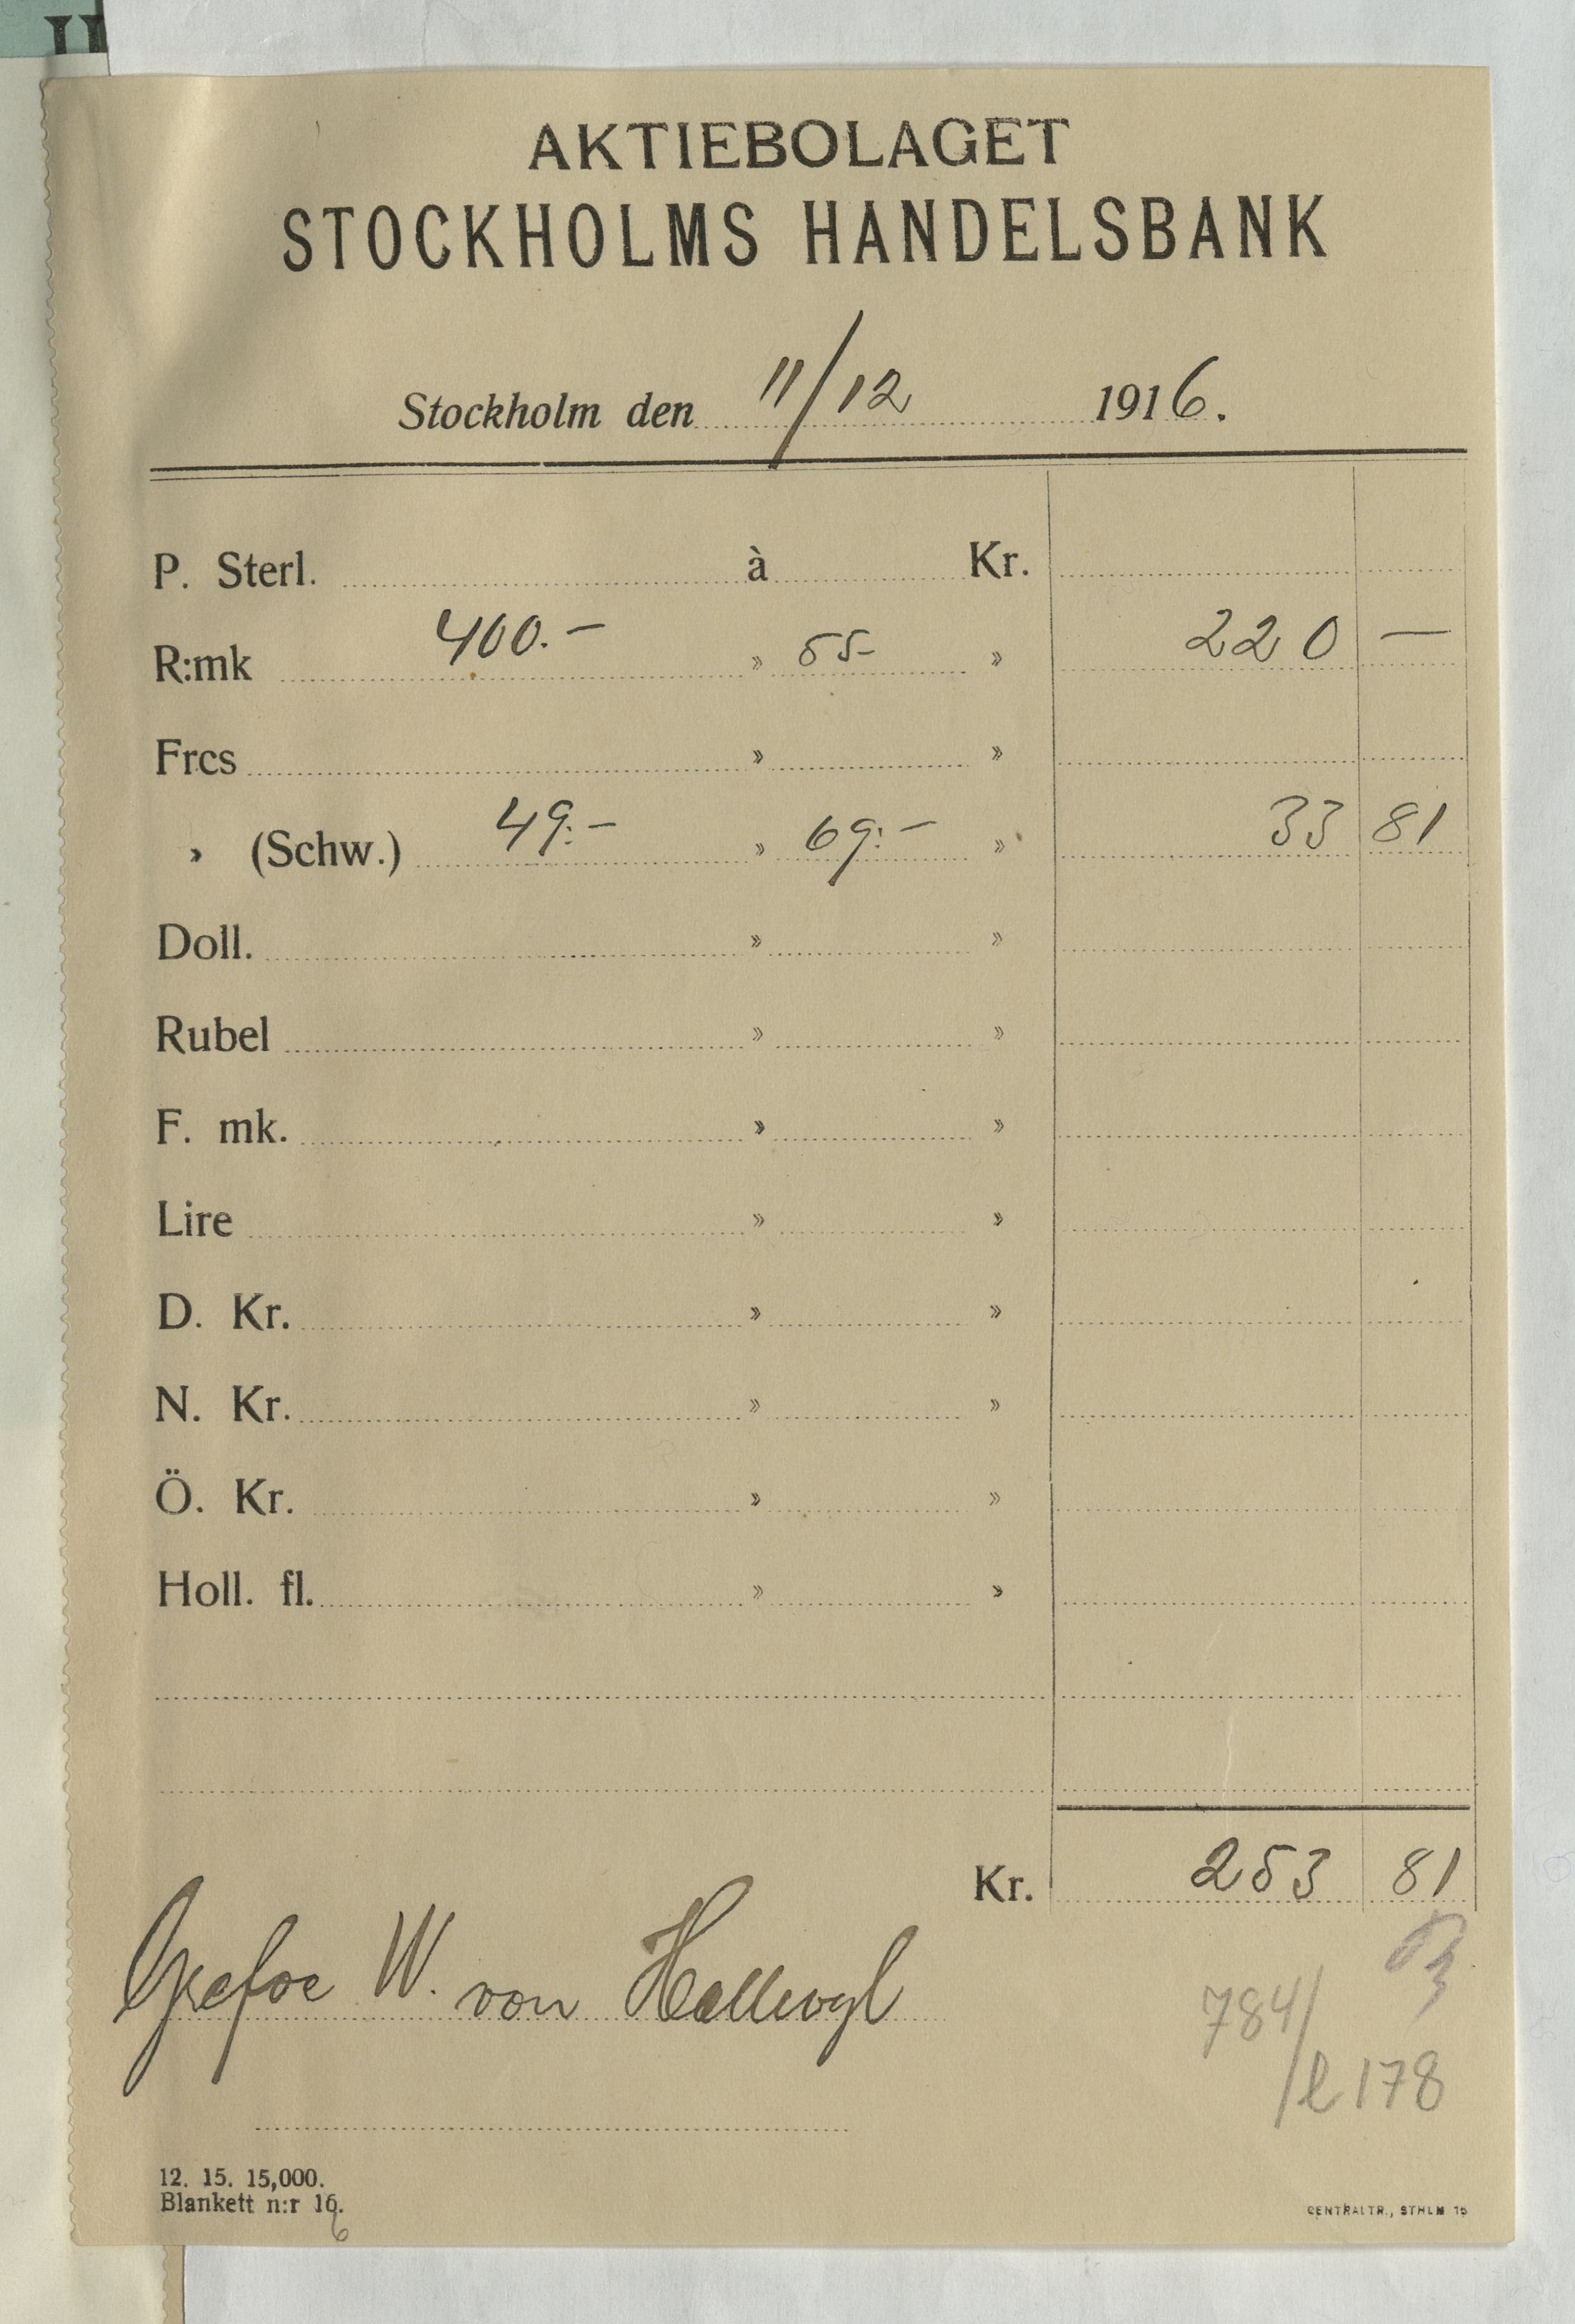 AKTIEBOLAGET
STOCKHOLMS HANDELSBANK
Stockholm den 11/12 1916.
P. Sterl. à Kr.
R:mk 400.- » 55- » 220 —
Frcs » »
» (Schw.) 49:- » 69:- » 33 81
Doll. » »
Rubel » »
F. mk. » »
Lire » »
D. Kr. » »
N. Kr. » »
Ö. Kr. » »
Holl. fl. » »
Kr. 253 81
W. von Hallwyl
784/
/l 178
12. 15. 15,000.
Blankett n:r 16.
6
CENTRALTR., STHLM 15